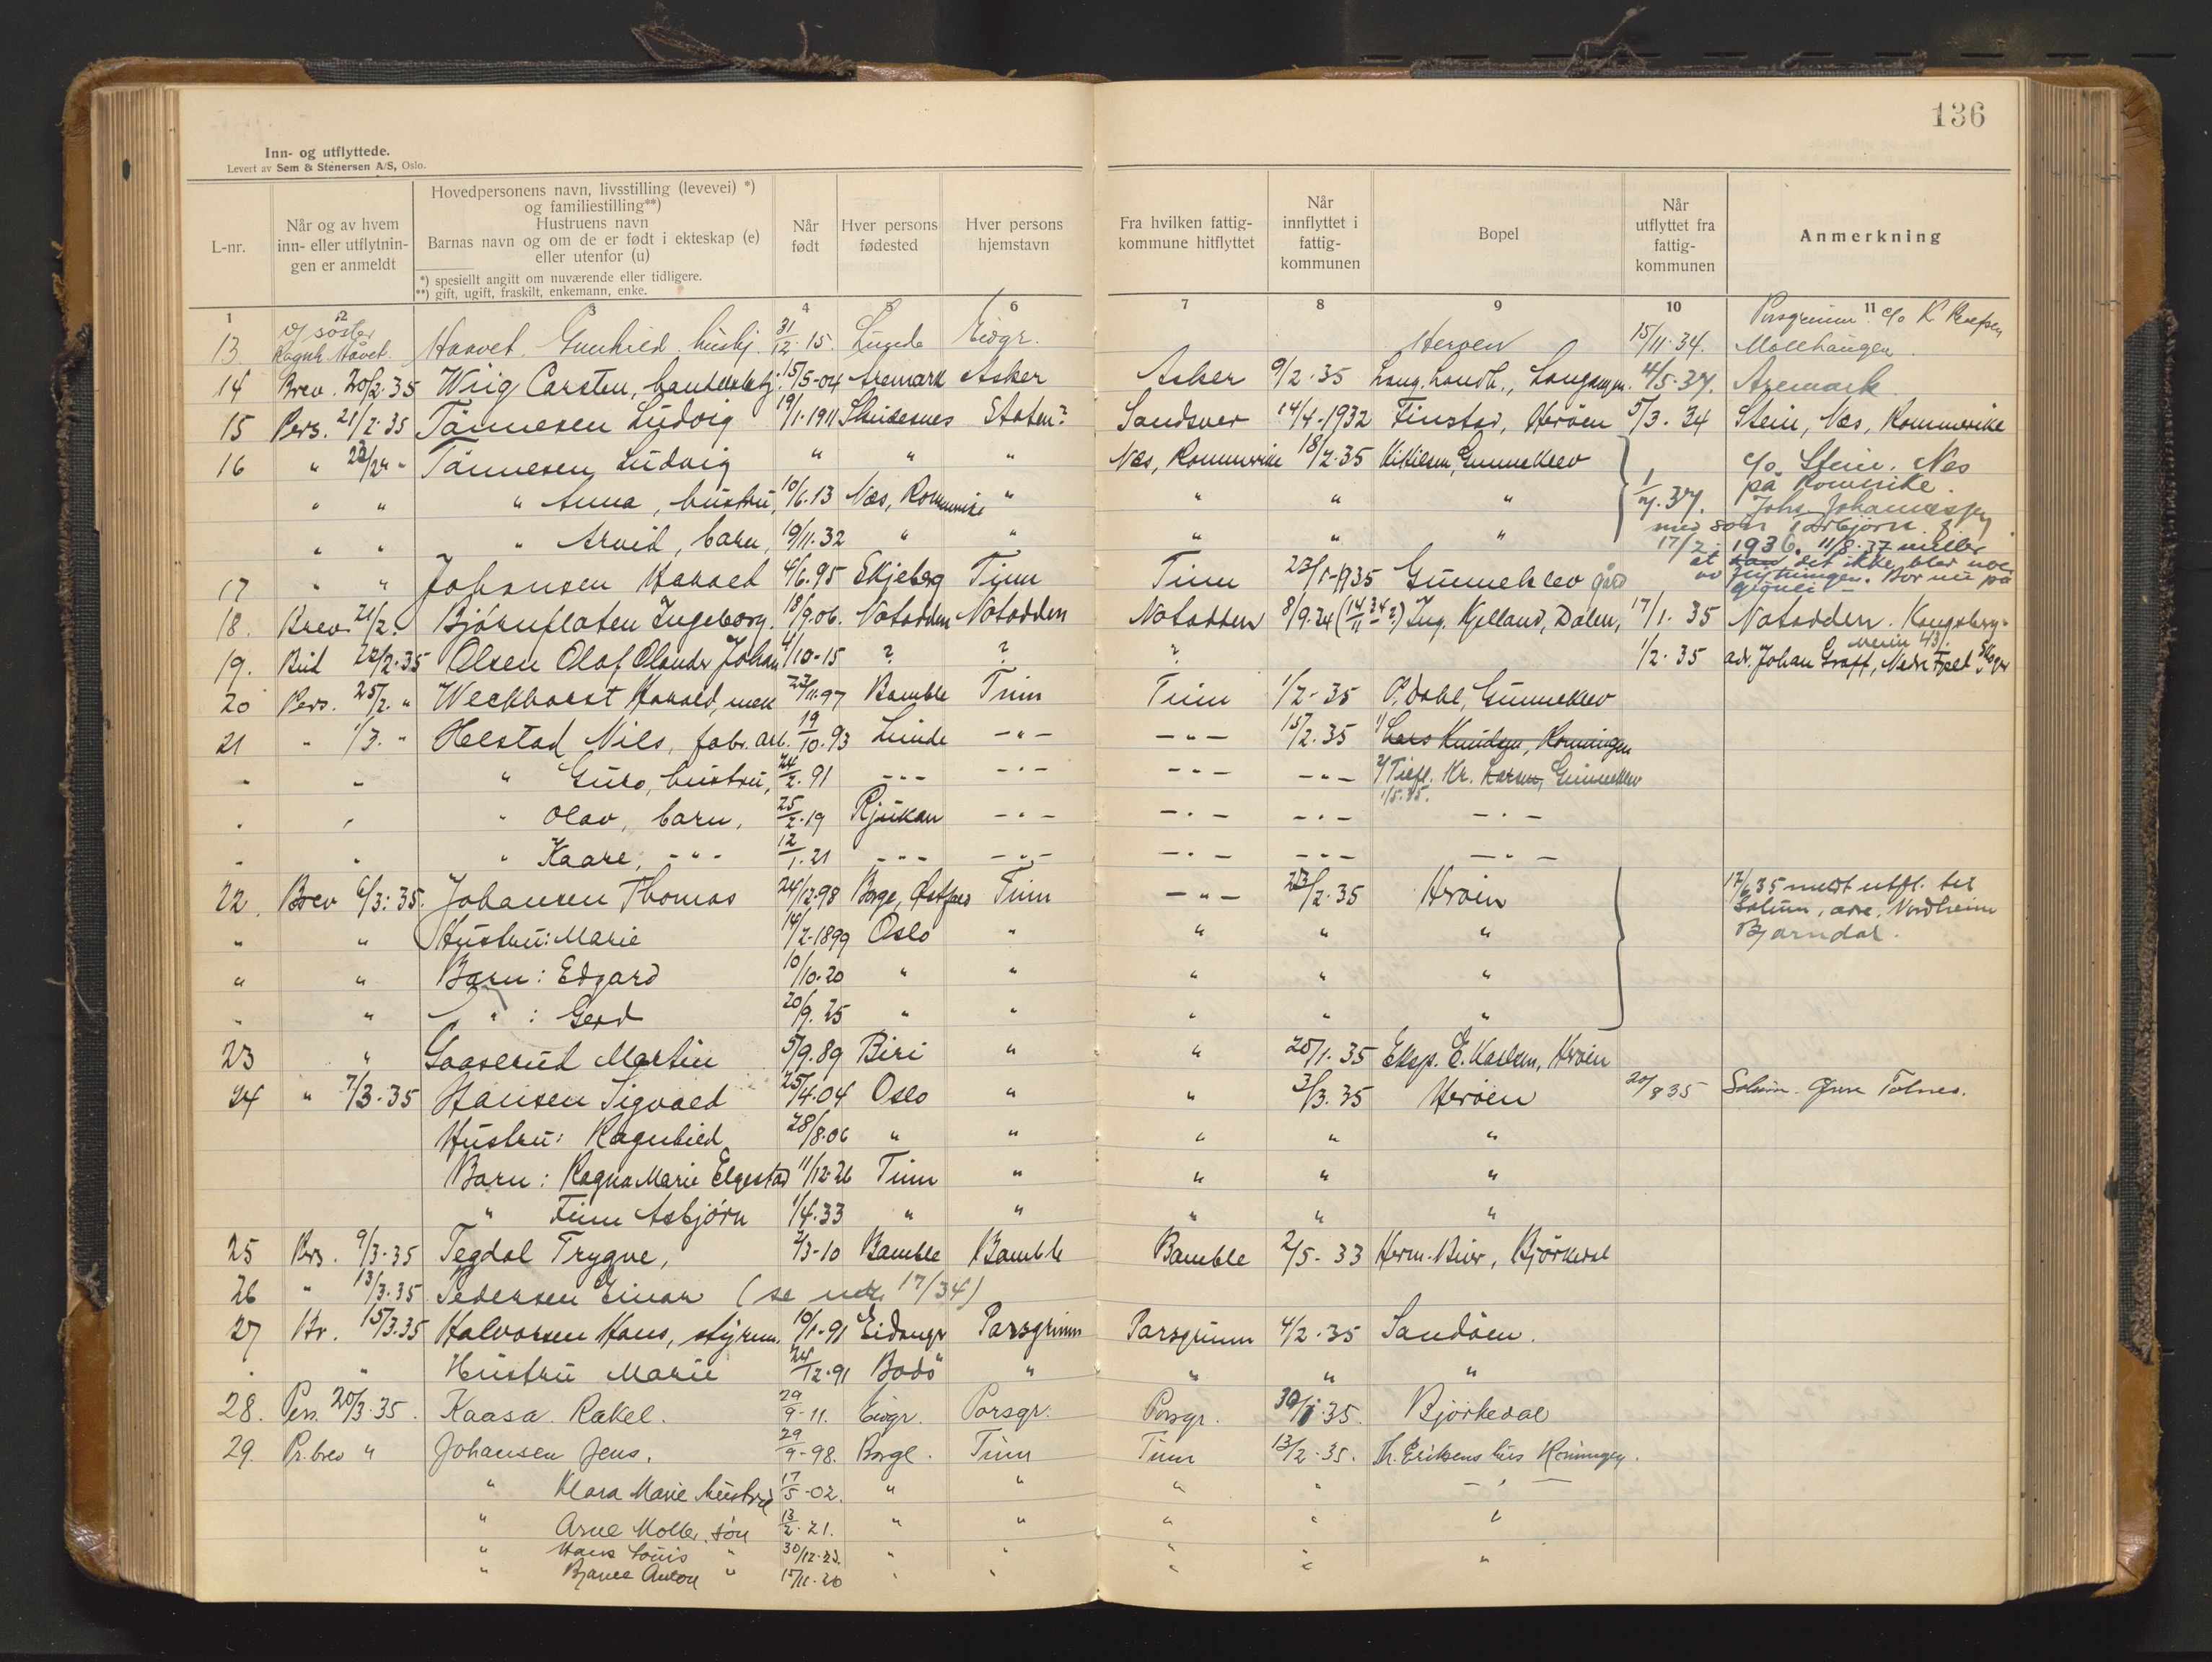 136
Inn- og utflyttede.
Levert av Sem & Stenersen A/S, Oslo.
L-nr. | Når og av hvem inn- eller utflytnin- gen er anmeldt | Hovedpersonens navn, livsstilling (levevei) *) og familiestilling**) Hustruens navn Barnas navn og om de er født i ekteskap (e) eller utenfor (u) | Når født | Hver persons fødested | Hver persons hjemstavn | Fra hvilken fattig- kommune hitflyttet | Når innflyttet i fattig- kommunen | Bopel | Når utflyttet fra fattig- kommunen | Anmerkning
*) spesiellt angitt om nuværende eller tidligere.
**) gift, ugift, fraskilt, enkemann, enke.
1 2 3 4 5 6 7 8 9 10 11
13. v/ søster Ragnh. Håvet. Haavet Gunhild hushj. 31/12-15. Lunde Eidgr. Herøen 15/11-34. Porsgrunn c/o K Møllhaugen.
14 Brev. 20/2-35 Wiig Carsten, handelsbetj. 15/5-04 Aremark Asker Asker 9/2-35 Lang. Landh., Langangen. 4/5-37. Aremark
15 Pers. 21/2-35 Tånnesen Ludvig 19/1-1911 Skudesnes Staten? Sandsver 14/4-1932 Finstad, Herøen 5/3-34 Stein, Næs, Rommerike
16 " 23/24 " Tånnesen Ludvig " " " Næs, Rommerike 18/2-35 Kittilsen, Gunneklev c/o Stein. Nes
" " " Anna, hustru, 10/6.13 Næs, Rommerike " " " " 1/4.37. på Romerike.
" " " Arvid, barn, 19/11.32 " " " " " Johs. Johannessen med sønn Torbjørn
17 " " Johansen Harald 4/6.95 Skjeberg Tinn Tinn 23/1-1935 Gunneklev gård 17/2-1936. 11/8-37 meller at det ikke blev noe av flytningen. Bor nu på
18. Brev. 21/2. Bjørnflaten Ingeborg. 18/9.06. Notodden Notodden Notodden 8/9.24 (14/11-34?) Ing. Kjelland, Dalen, 17/1-35 Notodden. Kongsberg-
19. Bud 22/2-35 Olsen Olaf Olander Johan 4/10-15 ? ? ? 1/2-35 adr. Johan Graff, Nedre Fjeld
20 Pers. 25/2. " Weckhorst Harald, mek 22/11-97 Bamble Tinn Tinn 1/2-35 O. Dahl, Gunneklev
21 " 1/3. " Helstad Nils, fabr. arb. 19/10.93 Lunde -"- -"- 15/2.35 1/ Lars Knudsen, Kroningen
" " " Guro, hustru, 24/2.91 -"- -"- -"- -"- 2/ Tilfl. Kr. Larsen, Gunneklev 1/5.35.
" " " Olav, barn, 25/2.19 Rjukan -"- -"- -"- -"-
" " " Kaare, -"- 12/1.21 -"- -"- -"- -"- -"-
22. Brev 6/3-35. Johansen Thomas 24/12-98 Borge, Østfold Tinn -"- 23/2.35 Herøen 17/6 35 meldt utfl. til Solum, adr. Nordheim Bjørndal.
" " Hustru: Marie 14/2-1899 Oslo " " " "
" " Barn: Edgard 10/10-20 " " " " "
" " " : Gerd 20/9.25 " " " " "
23 " Gaaserud Martin 5/9.89 Biri " " 20/1-35 Eksp. E. Karlsen, Herøen
24 " 7/3-35 Hansen Sigvald 25/4.04 Oslo " " 3/3.35 Herøen 20/8 35 Solum. Gunn Tolnes.
Hustru: Ragnhild 28/8.06 " " " " "
Barn: Ragna Marie Elgestad 11/12-26 Tinn " " " "
" Finn Asbjørn 1/4.33 " " " " "
25 Pers. 9/3-35 Tegdal Trygve, 2/3-10 Bamble Bamble Bamble 2/5-33 Herm. Biver, Bjørkedal
26 " 13/3-35 Pedersen Einar (se nr. 17/34)
27 Br. 15/3.35 Halvorsen Hans, styrm. 10/1-91 Eidanger Porsgrunn Porsgrunn 4/2-35 Sandøen.
" " Hustru Marie 24/12-91 Bodø " " " "
28. Pers. 20/3-35. Kaasa Rakel. 29/9-11. Eidgr. Porsgr. Porsgr. 30/1-35. Bjørkedal
29. Pr. brev " Johansen Jens. 29/9-98. Borge. Tinn Tinn 13/2-35. Th. Eriksens hus Kroningen.
" Klara Marie hustru 17/5-02. " " " " -"-
" Arne Møller, søn 13/2-21. " " " " "
" Hans Louis " 30/12-23. " " " " "
" Bjarne Anton " 15/11-26 " " " "